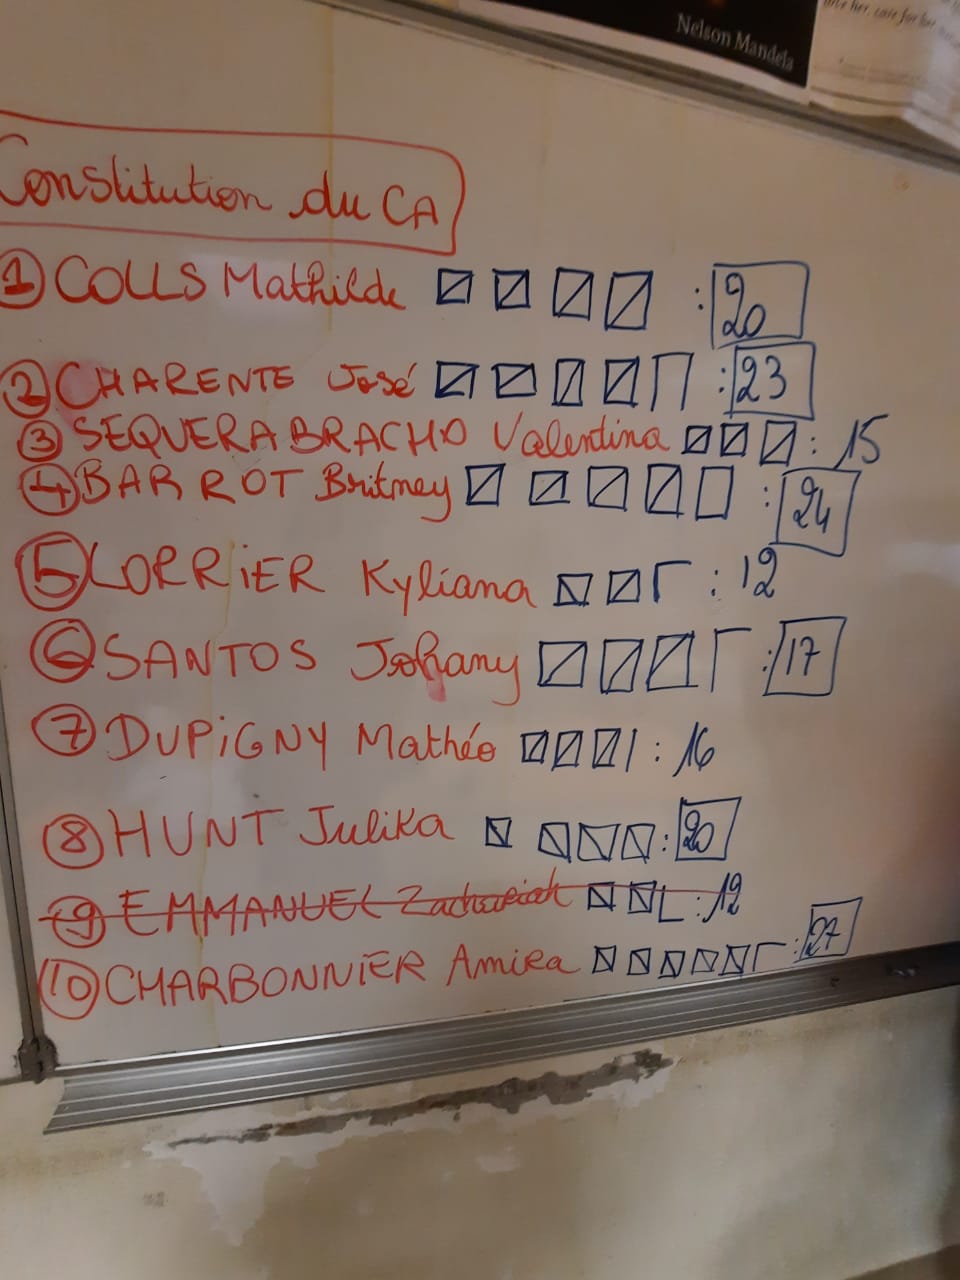 Nelson Mandela
Constitution du CA
1 COLLS Mathilde : 20
2 CHARENTE José : 23
3 SEQUERA BRACHO Valentina : 15
4 BARROT Britney : 24
5 LORRIER Kyliana : 12
6 SANTOS Johany : 17
7 DUPIGNY Mathéo : 16
8 HUNT Julika : 20
9 EMMANUEL Zachariah : 12
10 CHARBONNIER Amira : 27